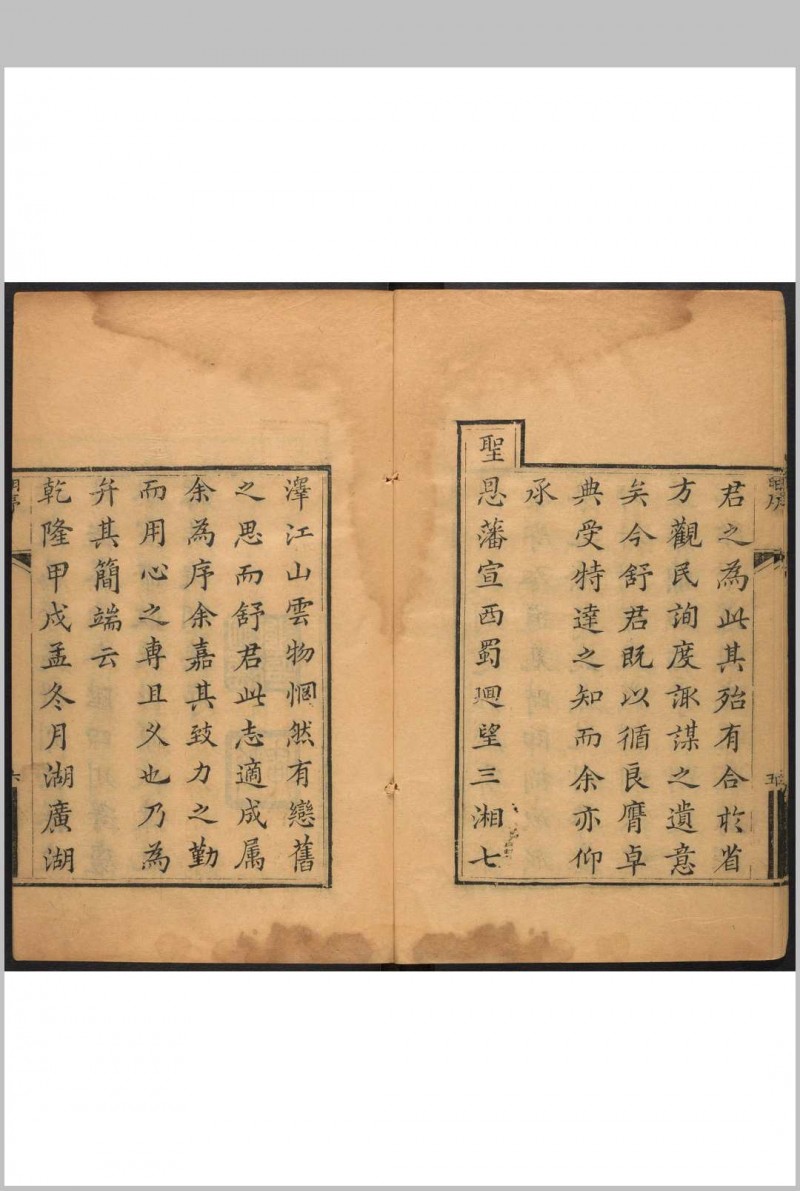 君之為此其殆有合扵省
方觀民詢度諏謀之遺意
矣今舒君既以循良膺卓
典受特達之知而余亦仰
承
聖恩藩宣西蜀廻望三湘七
五
澤江山雲物惘然有戀舊
之思而舒君此志適成属
余為序余嘉其致力之勤
而用心之専且久也乃為
弁其簡端云
乾隆甲戌孟冬月湖廣湖
六